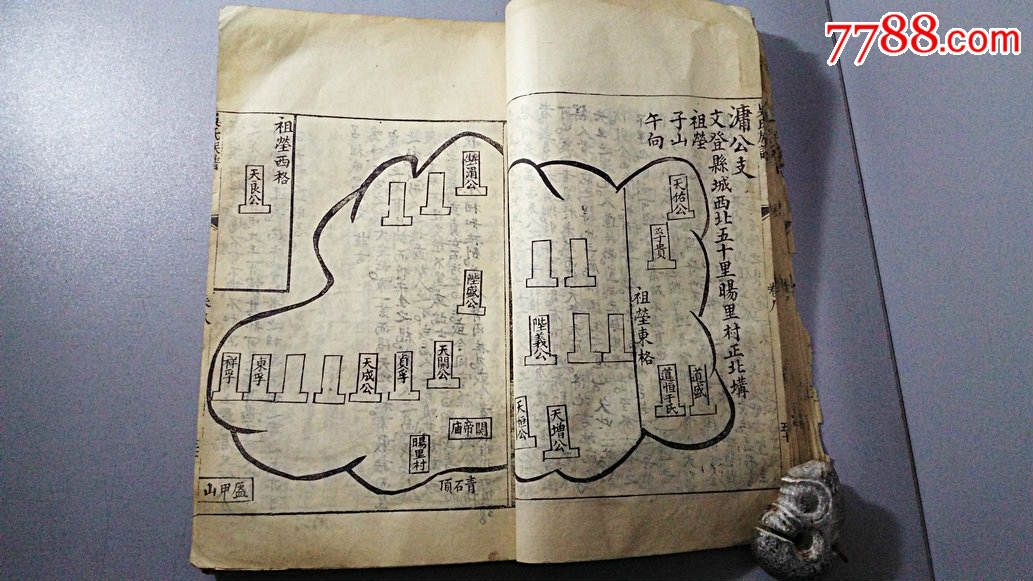 7788.com
滽公支
文登縣城西北五十里晹里村正北墹
祖塋
子山
午向
天佑公
于貴
祖塋東格
道盛
道恒于氏
陛義公
天增公
天恒公
湄公
陛盛公
天開公
貞孚
天成公
東孚
祥孚
關帝庙
晹里村
青石頂
盔甲山
祖塋西格
天良公